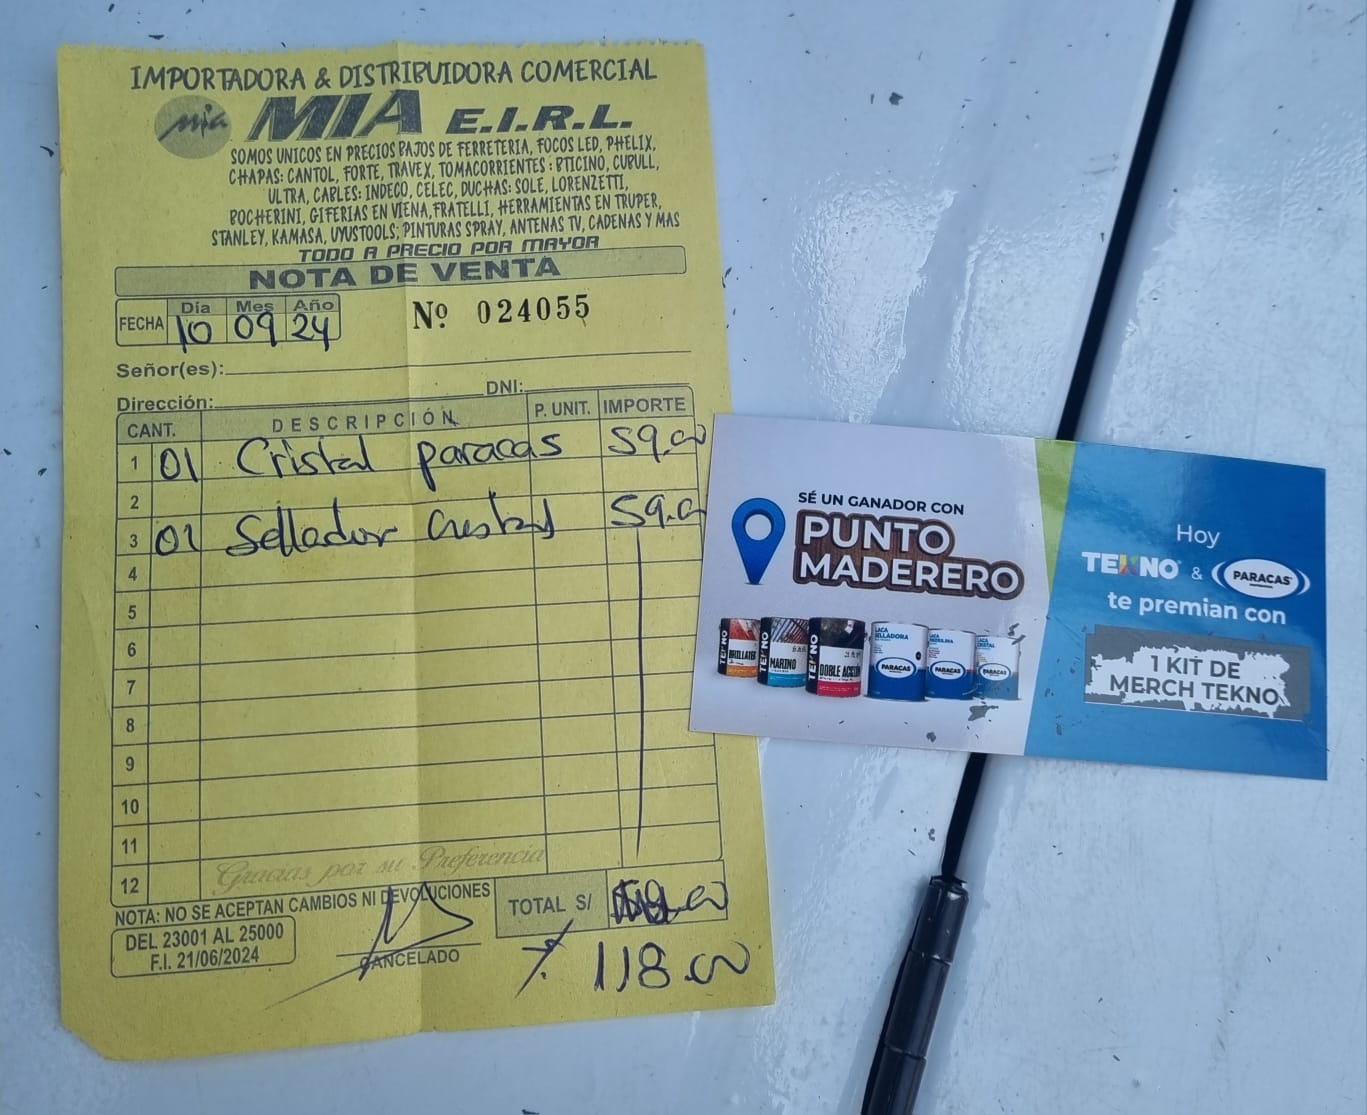 IMPORTADORA & DISTRIBUIDORA COMERCIAL
mia MIA E.I.R.L.
SOMOS UNICOS EN PRECIOS BAJOS DE FERRETERIA, FOCOS LED, PHELIX,
CHAPAS: CANTOL, FORTE, TRAVEX, TOMACORRIENTES : BTICINO, CUBULL,
ULTRA, CABLES: INDECO, CELEC, DUCHAS: SOLE, LORENZETTI,
BOCHERINI, GIFERIAS EN VIENA, FRATELLI, HERRAMIENTAS EN TRUPER,
STANLEY, KAMASA, UYUSTOOLS; PINTURAS SPRAY, ANTENAS TV, CADENAS Y MAS
TODO A PRECIO POR MAYOR
NOTA DE VENTA
FECHA Día Mes Año
10 09 24
Nº 024055
Señor(es):
Dirección: DNI:
CANT. DESCRIPCIÓN P. UNIT. IMPORTE
1 01 Cristal paracas 59.00
2
3 01 Sellador Cristal 59.0
4
5
6
7
8
9
10
11
12
Gracias por su Preferencia
NOTA: NO SE ACEPTAN CAMBIOS NI DEVOLUCIONES
DEL 23001 AL 25000
F.I. 21/06/2024
CANCELADO
TOTAL S/
118.00
SÉ UN GANADOR CON
PUNTO
MADERERO
TEKNO BRILLATEK
TEKNO MARINO
TEKNO DOBLE ACCIÓN
LACA SELLADORA PARACAS
PARACAS
LACA CRISTAL PARACAS
Hoy
TEKNO & PARACAS
te premian con
1 KIT DE
MERCH TEKNO